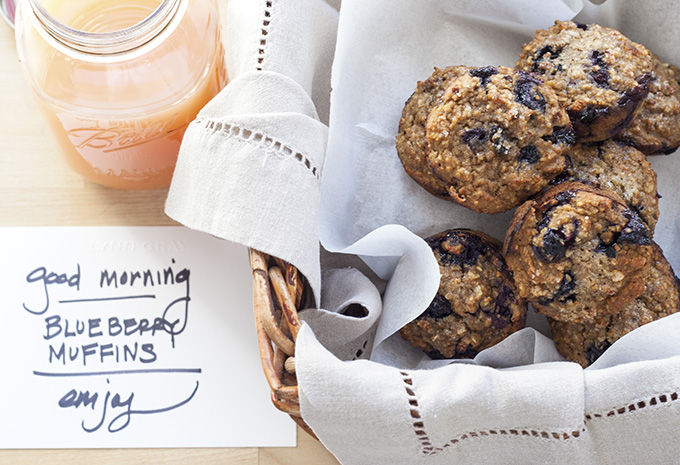 Ball
LYNN GRAY
good morning
BLUEBERRY
MUFFINS
enjoy